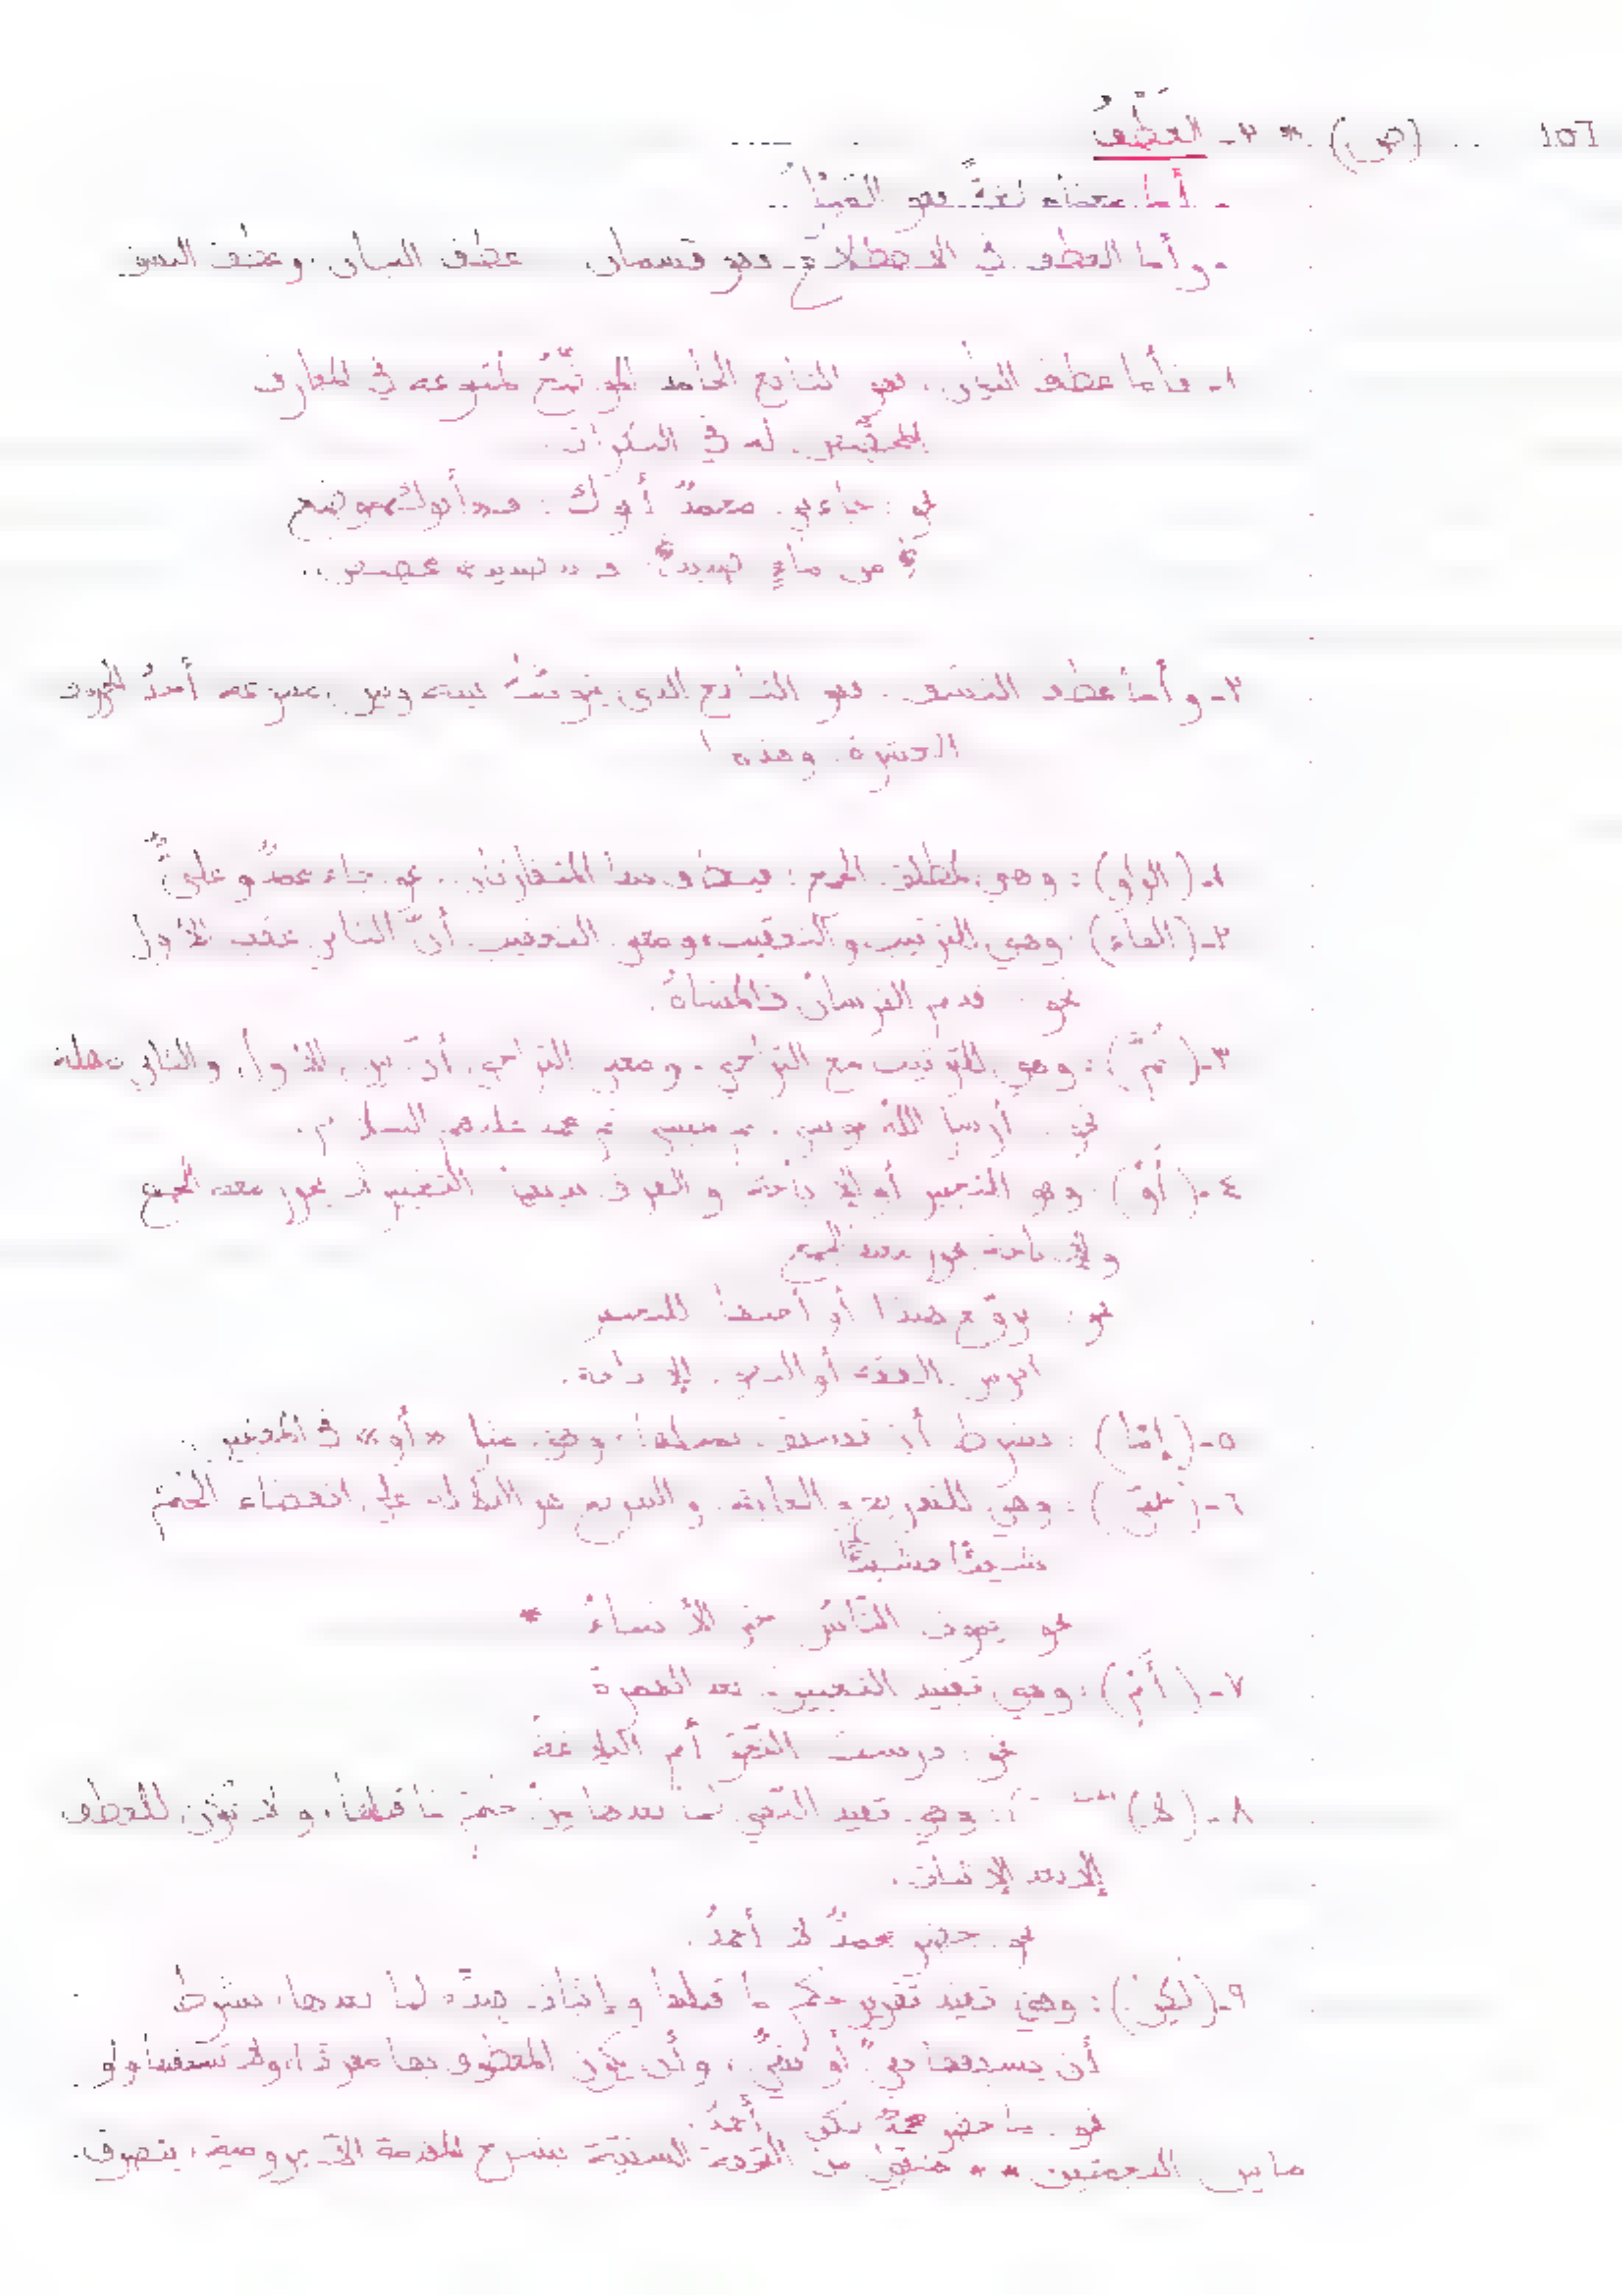 ١٥٦ .. (ص) * ٢- العَطْفُ
- أما معناه لغةً فهو الميل ..
- وأما العطف في الاصطلاح فهو قسمان عطف البيان، وعطف النسق
١- فأما عطف البيان، فهو التابع الجامد الموضِّحُ لمتبوعه في المعارف
المخصِّص له في النكرات
نحو: جاءني محمدٌ أبوك: فـ«أبوك» موضح
من ماءٍ صديدٍ فـ «صديد» مخصص ..
٢- وأما عطف النسق. فهو التابع الذي يتوسَّطُ بينه وبين متبوعه أحدُ الحروف
العشرة وهذه
١- (الواو): وهي لمطلق الجمع: فيعطف بها المتقارنان.. نحو جاء محمدٌ وعليٌّ
٢- (الفاء) وهي للترتيب والتعقيب، ومعنى التعقيب أنَّ الثاني عقب الأول
نحو قدم الفرسانُ فالمشاةُ.
٣- (ثمَّ): وهي للترتيب مع التراخي، ومعنى التراخي. أن بين الأول والثاني مهلة
نحو أرسل الله موسى ثم عيسى ثم محمد عليهم السلام.
٤- (أو) وهو للتخيير أو الإباحة والفرق بينهما التخيير لا يجوز معه الجمع
والإباحة يجوز معه الجمع
نحو: تزوج هندا أو أختها للتخيير
ادرس الفقه أو النحو. للإباحة.
٥- (إمَّا): بشرط أن تسبق بمثلها، وهي مثل «أو» في المعنيين
٦- (حتى): وهي للتدريج والغاية. والتدريج هو الدلالة على انقضاء الحكم
شيئًا فشيئًا
نحو يموت النَّاسُ حتى الأنبياءُ *
٧- (أم): وهي تفيد التعيين بعد الهمزة
نحو: درست النَّحْوَ أم البلاغة
٨- (لا): وهي تفيد النفي لما بعدها من حكم ما قبلها، ولا تكون للعطف
إلا بعد الإثبات.
نحو حضر محمدٌ لا أحمدُ.
٩- (لكن): وهي تفيد تقرير حكم ما قبلها وإثبات ضدَّه لما بعدها، بشرط
أن يسبقها نهيٌ أو نفيٌ، وأن يكون المعطوف بها مفردًا، ولا تسبقها واو
نحو. ما حضر محمدٌ لكن أحمدُ.
ما بين النجمتين ** منقول من التحفة السنية بشرح المقدمة الآجرومية، بتصرف.